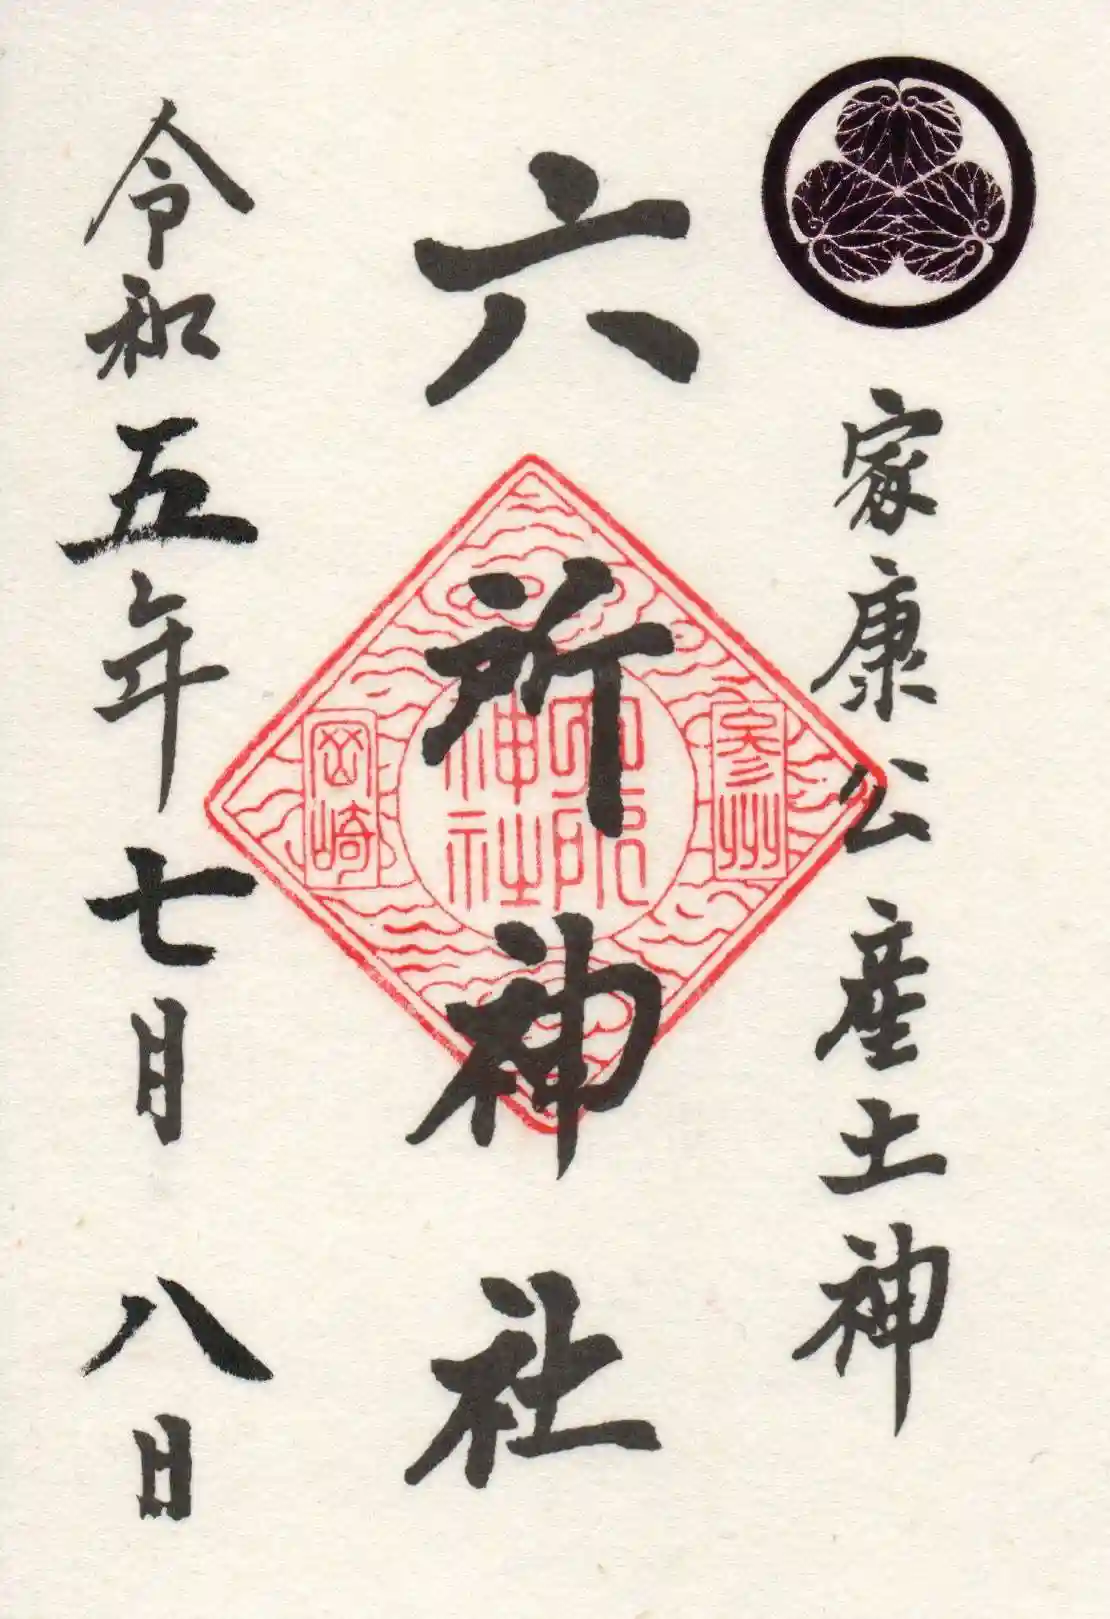 家康公産土神
六所神社
参州
六所
神社
岡崎
令和五年七月八日